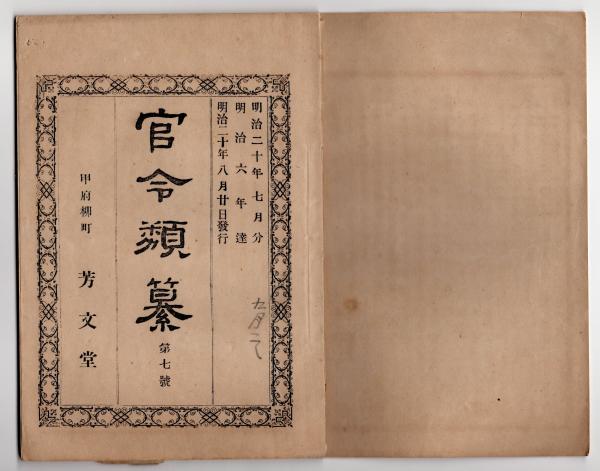 明治二十年七月分
明治六年達
明治二十年八月廿日發行
官令類纂
第七號
甲府柳町
芳文堂